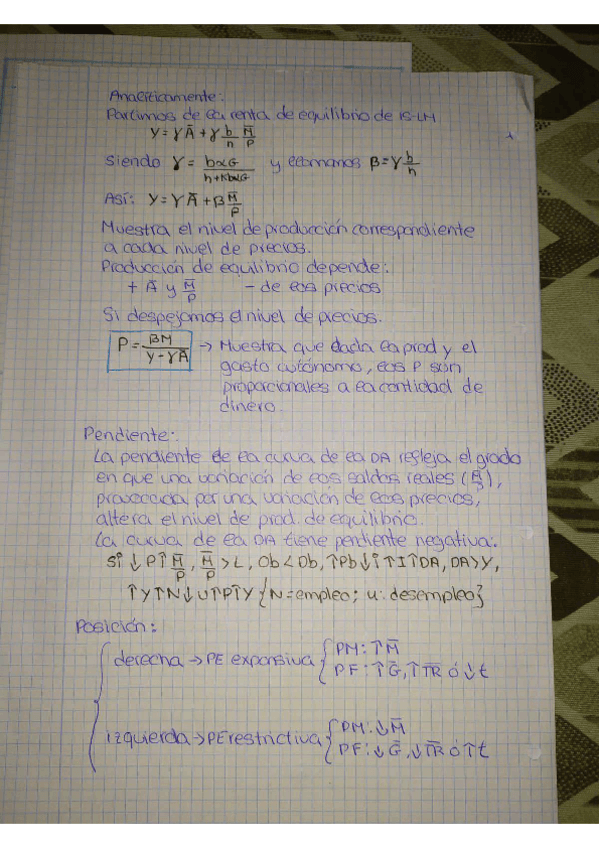 Analíticamente:
Partimos de la renta de equilibrio de IS-LM
Y = γĀ + γ b/h M̄/P
Siendo γ = hαG/(h+kbαG) y llamamos β = γ b/h
Así: Y = γĀ + β M̄/P
Muestra el nivel de producción correspondiente
a cada nivel de precios.
Producción de equilibrio depende:
+ Ā y M̄/P - de los precios
Si despejamos el nivel de precios.
P = βM/(Y - γĀ) → Muestra que dada la prod y el
gasto autónomo, los P son
proporcionales a la cantidad de
dinero.
Pendiente:
La pendiente de la curva de la DA refleja el grado
en que una variación de los saldos reales (M̄/P),
provocada por una variación de los precios,
altera el nivel de prod. de equilibrio.
La curva de la DA tiene pendiente negativa:
Si ↓P↑M̄/P, M̄/P > L, Ob < Db, ↑Pb↓i↑I↑DA, DA>Y,
↑Y↑N↓u↑P↑Y {N=empleo; u: desempleo}
Posición:
derecha → PE expansiva { PM: ↑M̄
PF: ↑Ḡ, ↑T̄R̄ ó ↓t
izquierda → PE restrictiva { PM: ↓M̄
PF: ↓Ḡ, ↓T̄R̄ ó ↑t